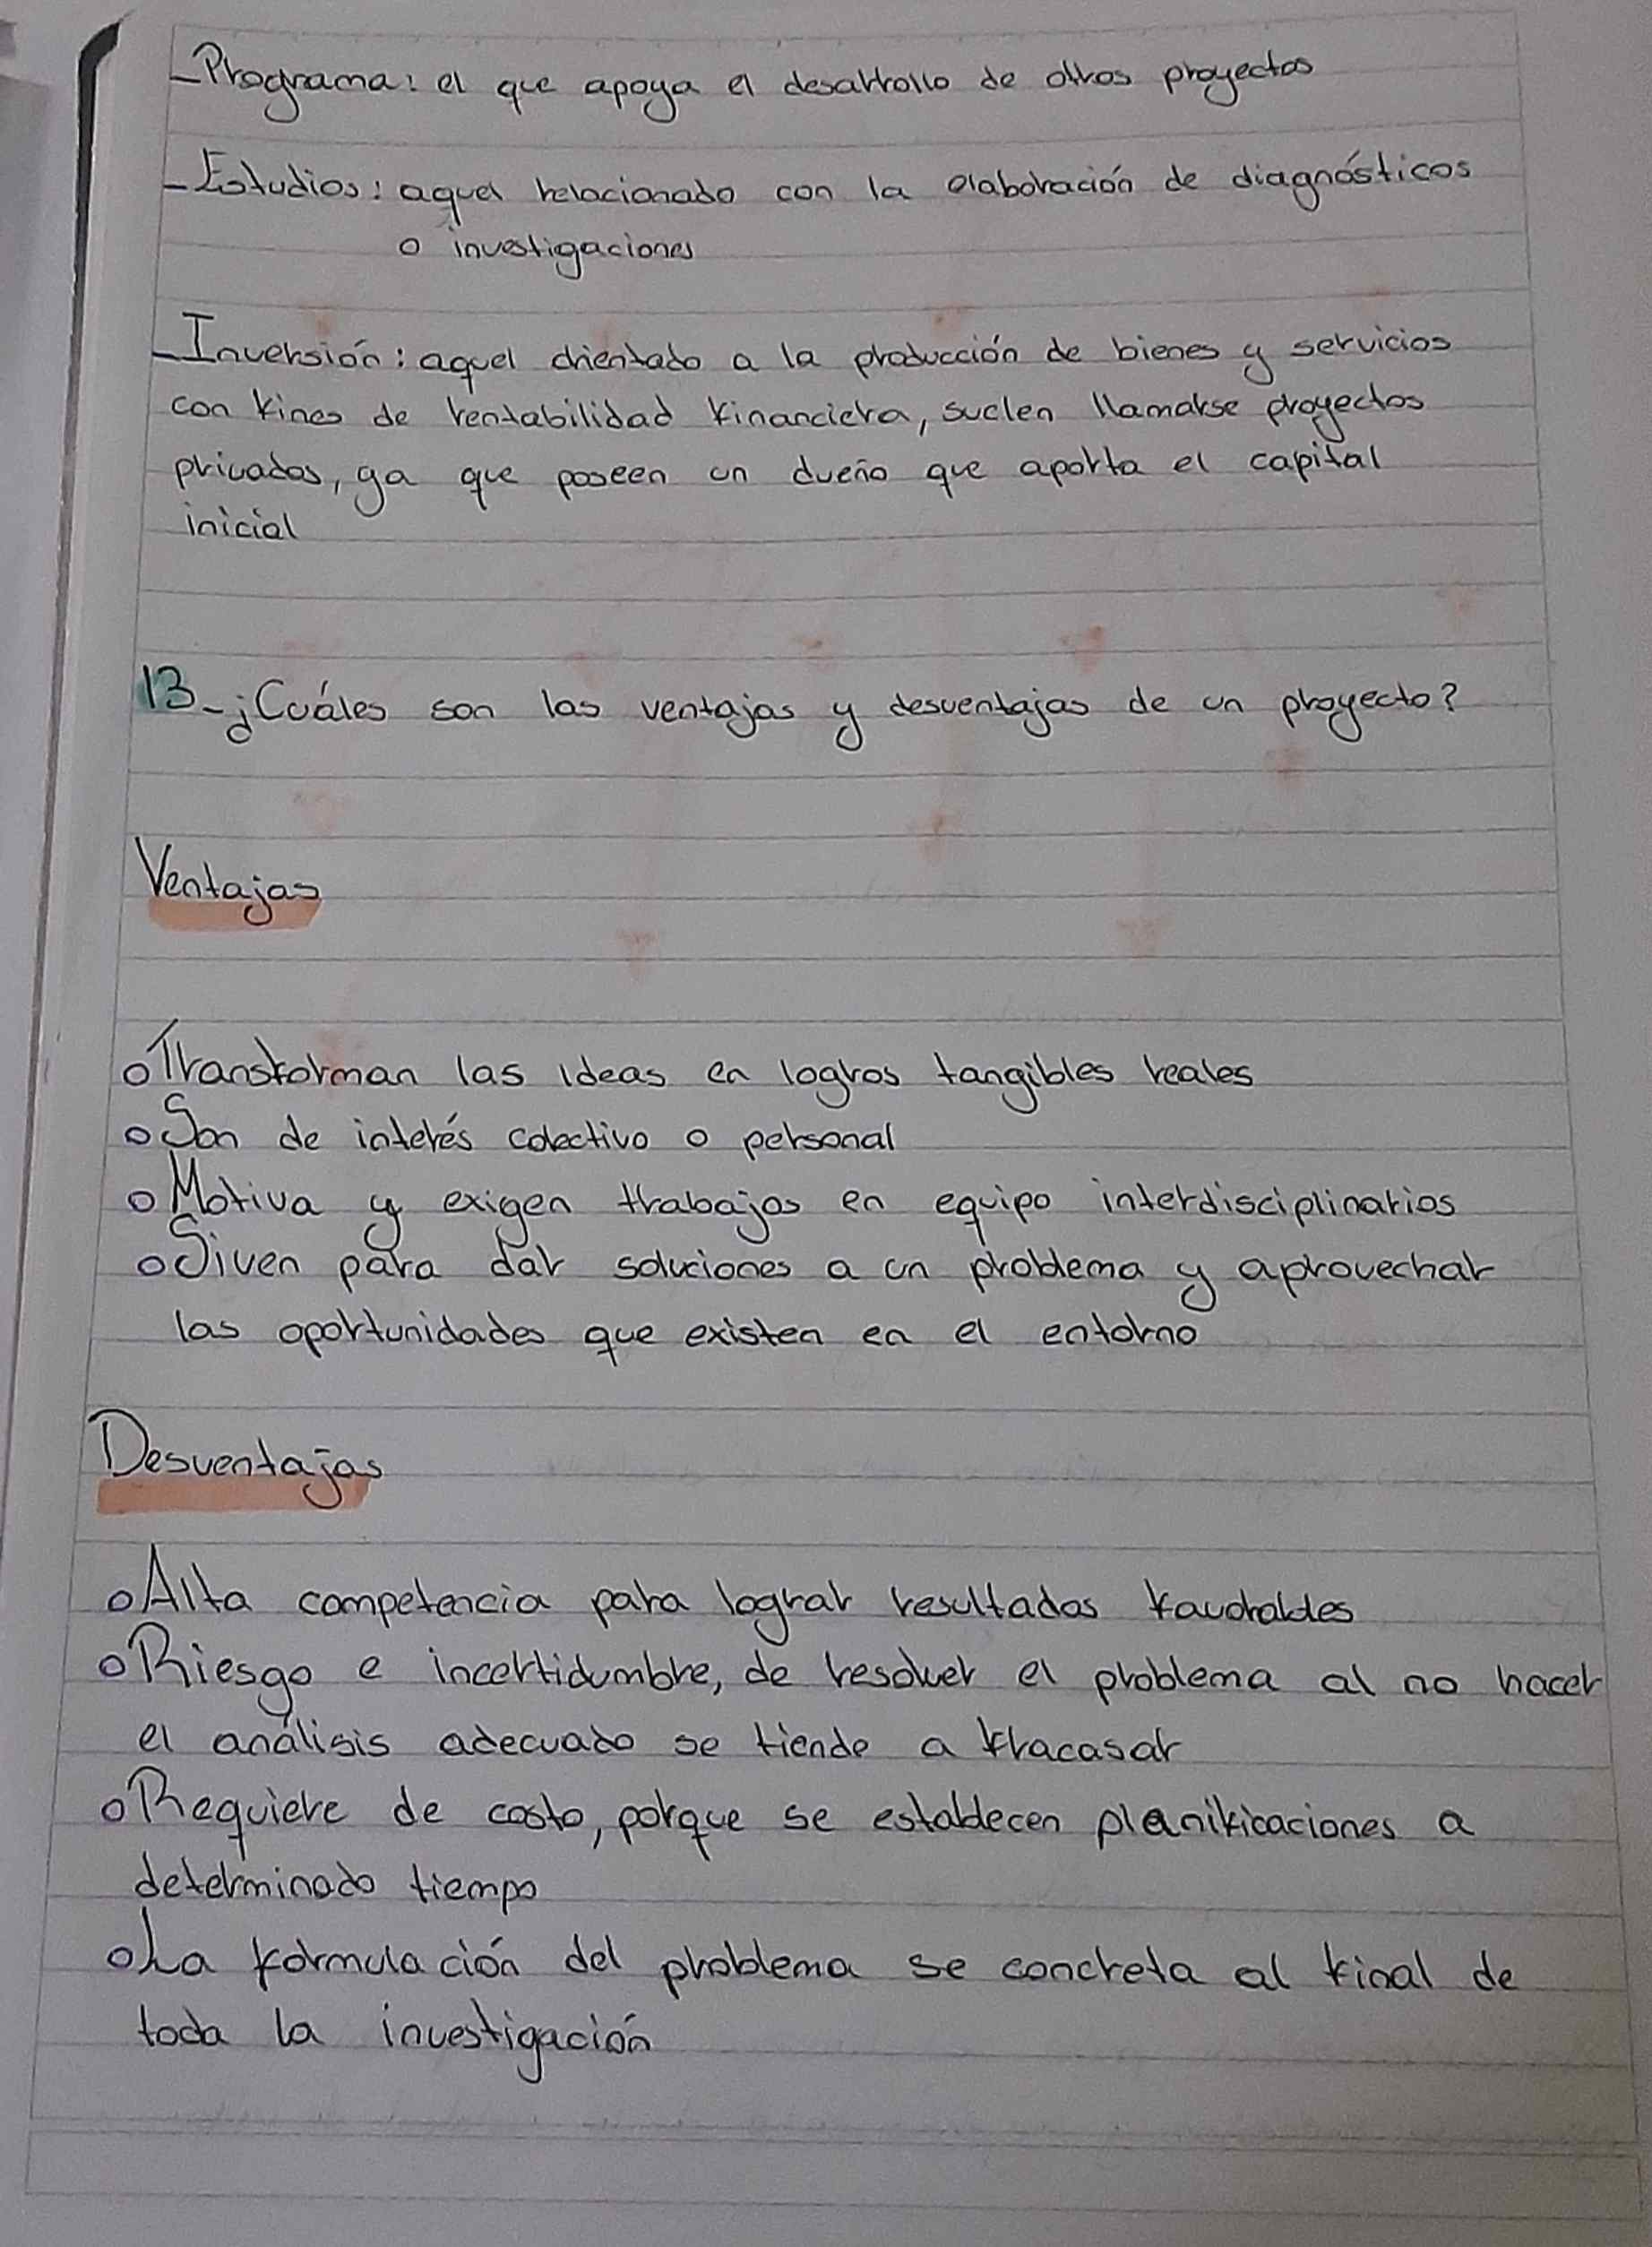 - Programa: el que apoya el desarrollo de otros proyectos
- Estudios: aquel relacionado con la elaboración de diagnósticos
o investigaciones
- Inversión: aquel orientado a la producción de bienes y servicios
con fines de rentabilidad financiera, suelen llamarse proyectos
privados, ya que poseen un dueño que aporta el capital
inicial
13-¿Cuáles son las ventajas y desventajas de un proyecto?
Ventajas
o Transforman las ideas en logros tangibles reales
o Son de interés colectivo o personal
o Motiva y exigen trabajos en equipo interdisciplinarios
o Siven para dar soluciones a un problema y aprovechar
las oportunidades que existen en el entorno
Desventajas
o Alta competencia para lograr resultados favorables
o Riesgo e incertidumbre, de resolver el problema al no hacer
el análisis adecuado se tiende a fracasar
o Requiere de costo, porque se establecen planificaciones a
determinado tiempo
o La formulación del problema se concreta al final de
toda la investigación